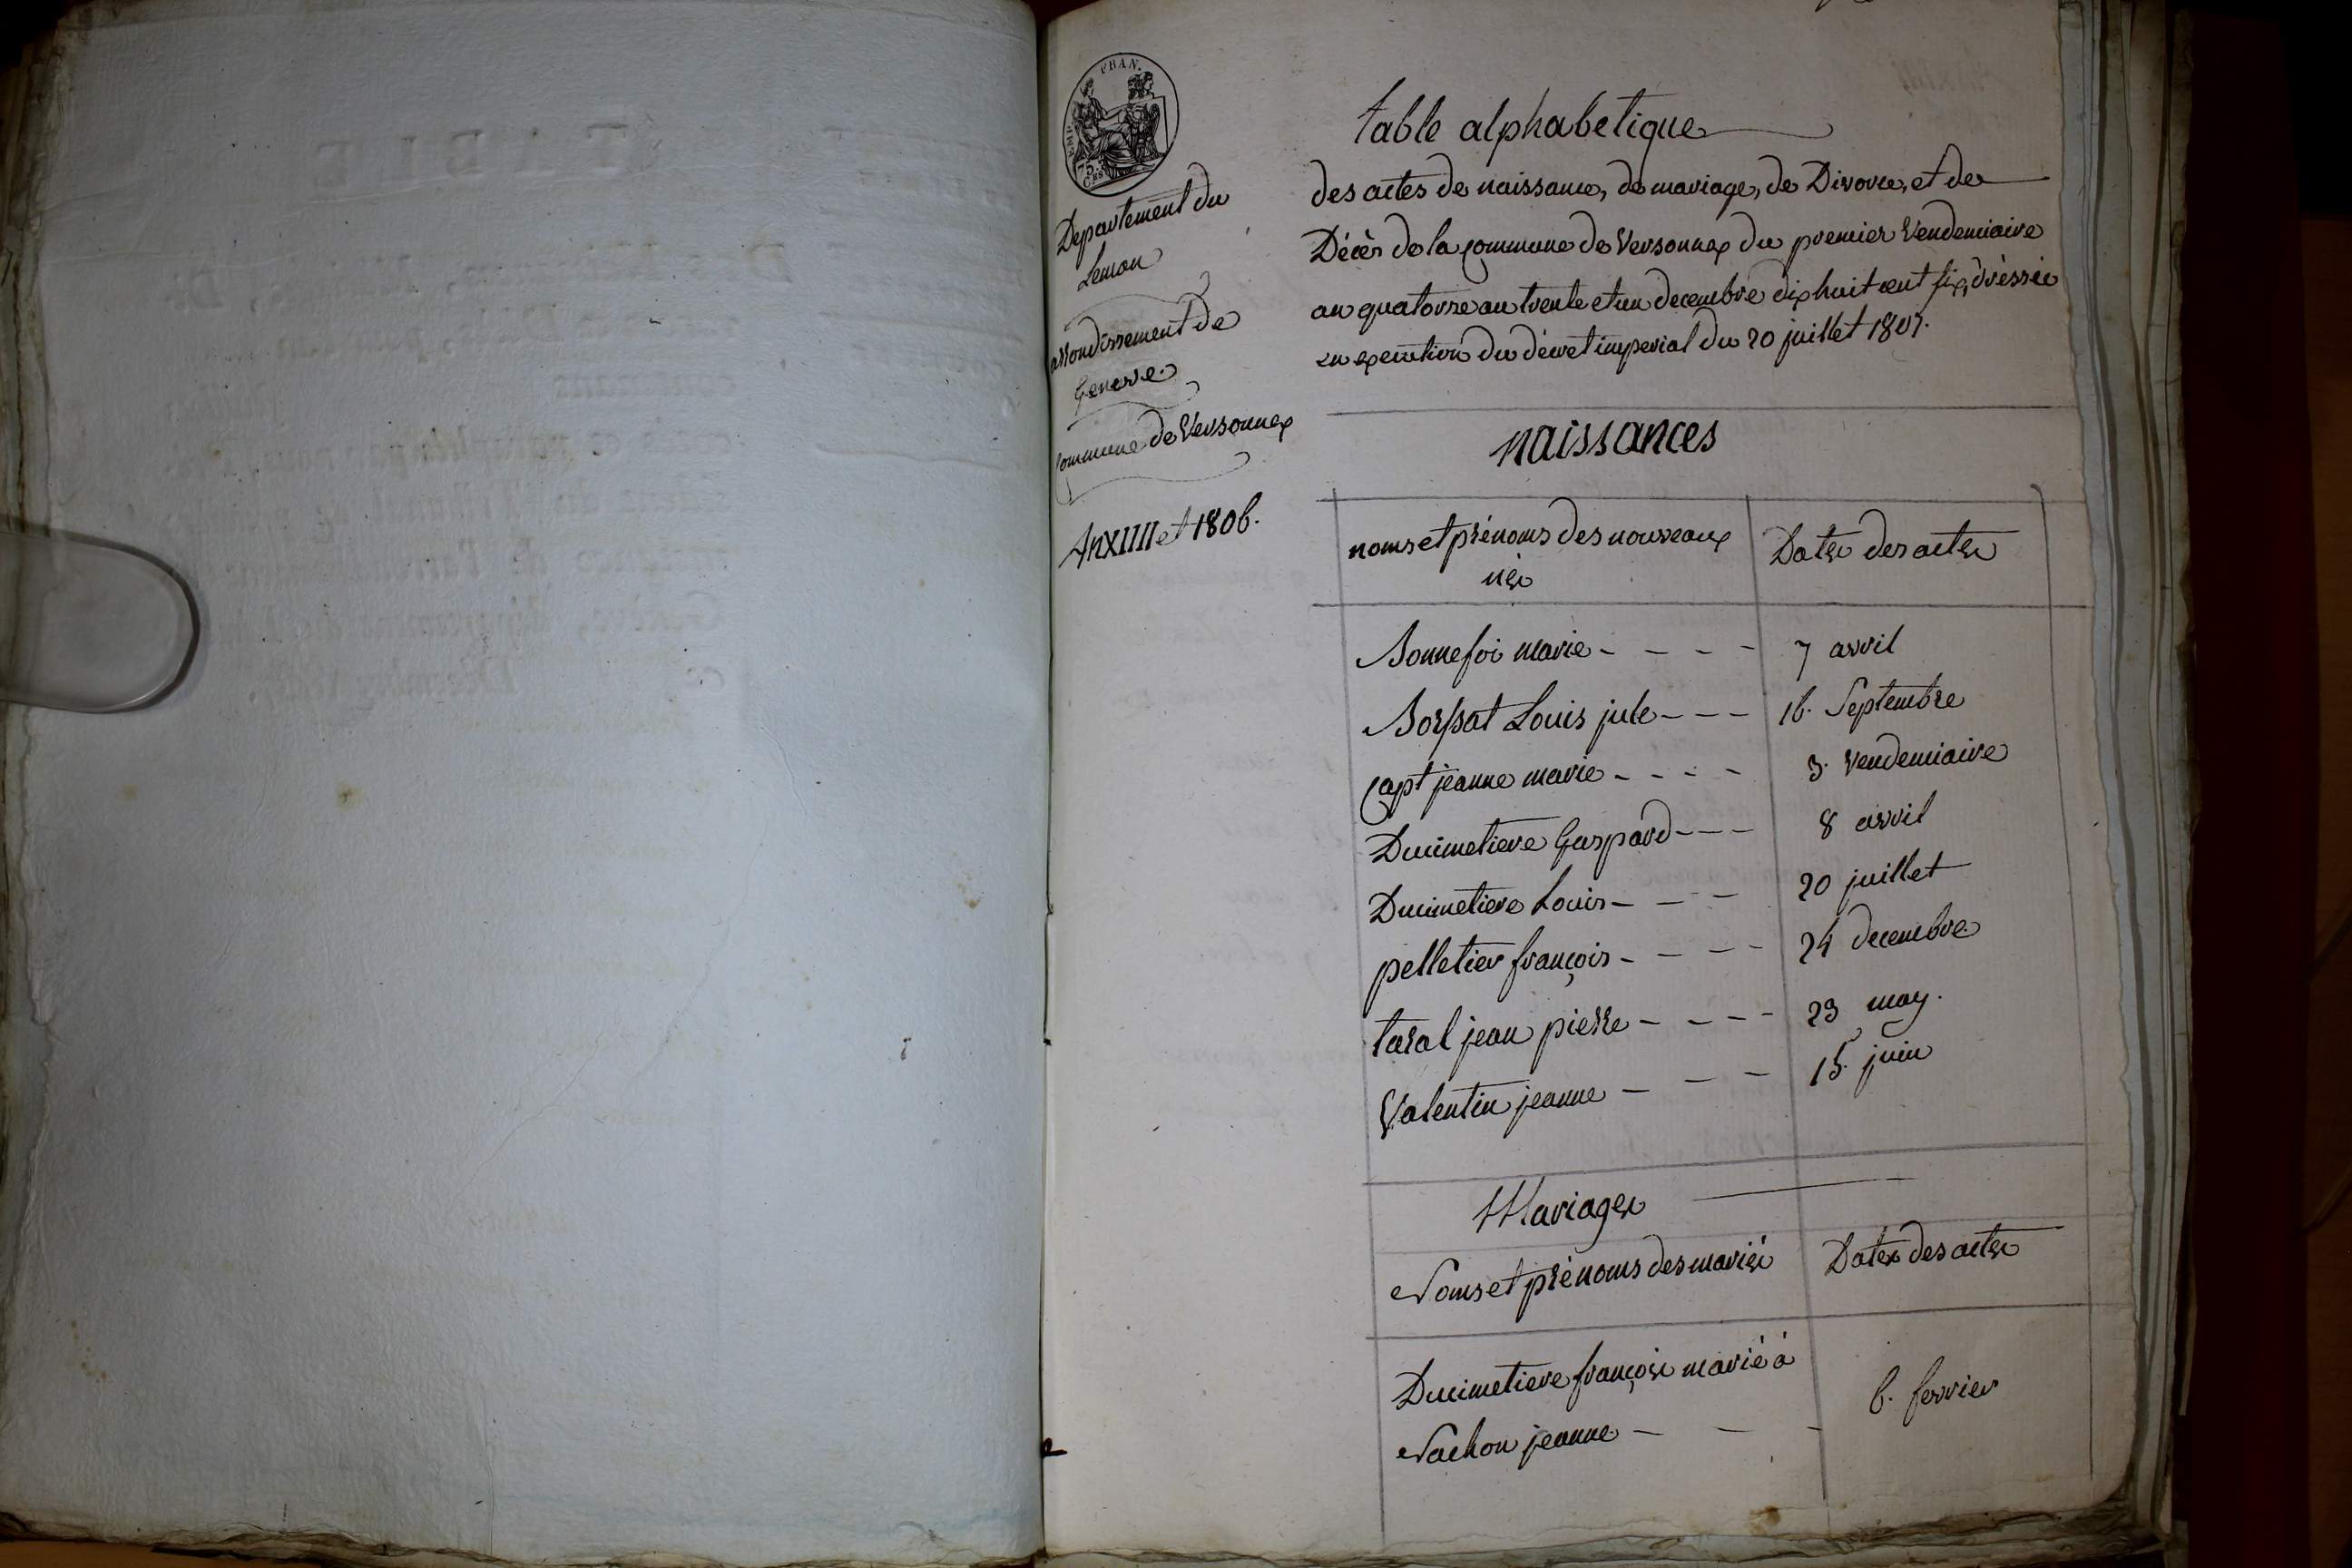 EMP. FRAN.
75
CES
Departement du
Leman
arrondissement de
Geneve.
Commune de Versonnex
An XIIII et 1806.
table alphabetique
des actes de naissance, de mariage, de Divorce, et de
Décès de la commune de Versonnex du premier Vendemiaire
an quatorze au trente et un decembre dix huit cent six, dréssée
en execution du décret imperial du 20 juillet 1807.
naissances
noms et prénoms des nouveaux
nés
Dates des actes
Bonnefoi marie - - - - 7 avril
Louis jule - - - 16. Septembre
Capt jeanne marie - - - - 3. Vendemiaire
Ducimetiere Gaspard - - - 8 avril
Ducimetiere Louis - - - 20 juillet
pelletier françois - - - - 24 decembre
jean pierre - - - - 23 may.
Valentin jeanne - - - 15. juin
Mariages
Noms et prénoms des mariés
Dates des actes
Ducimetiere françois marié à
Vachon jeanne - - - 6. fevrier